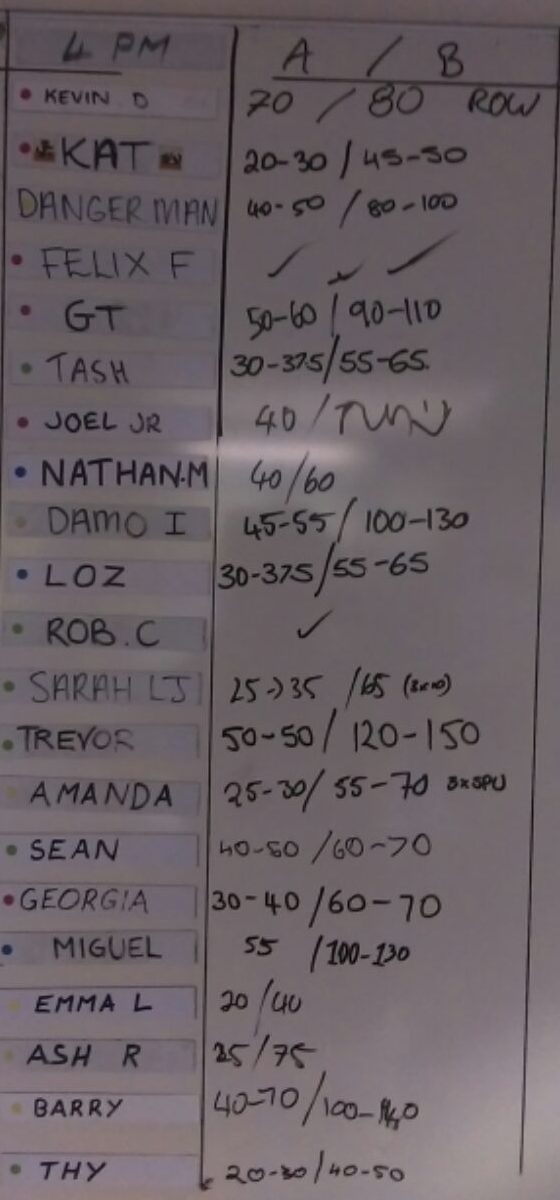 4 PM A / B
KEVIN D 70 / 80 ROW
KAT 20-30 / 45-50
DANGER MAN 40-50 / 80-100
FELIX F ✓ ✓ ✓
GT 50-60 / 90-110
TASH 30-37.5/55-65.
JOEL JR 40 /
NATHAN.M 40/60
DAMO I 45-55 / 100-130
LOZ 30-37.5/55-65
ROB.C ✓
SARAH LJ 25->35 /65 (3x10)
TREVOR 50-50 / 120-150
AMANDA 25-30/ 55-70 3x5PU
SEAN 40-50 /60-70
GEORGIA 30-40 /60-70
MIGUEL 55 /100-130
EMMA L 20/40
ASH R /75
BARRY 40-70 /100-
THY 20-30/40-50